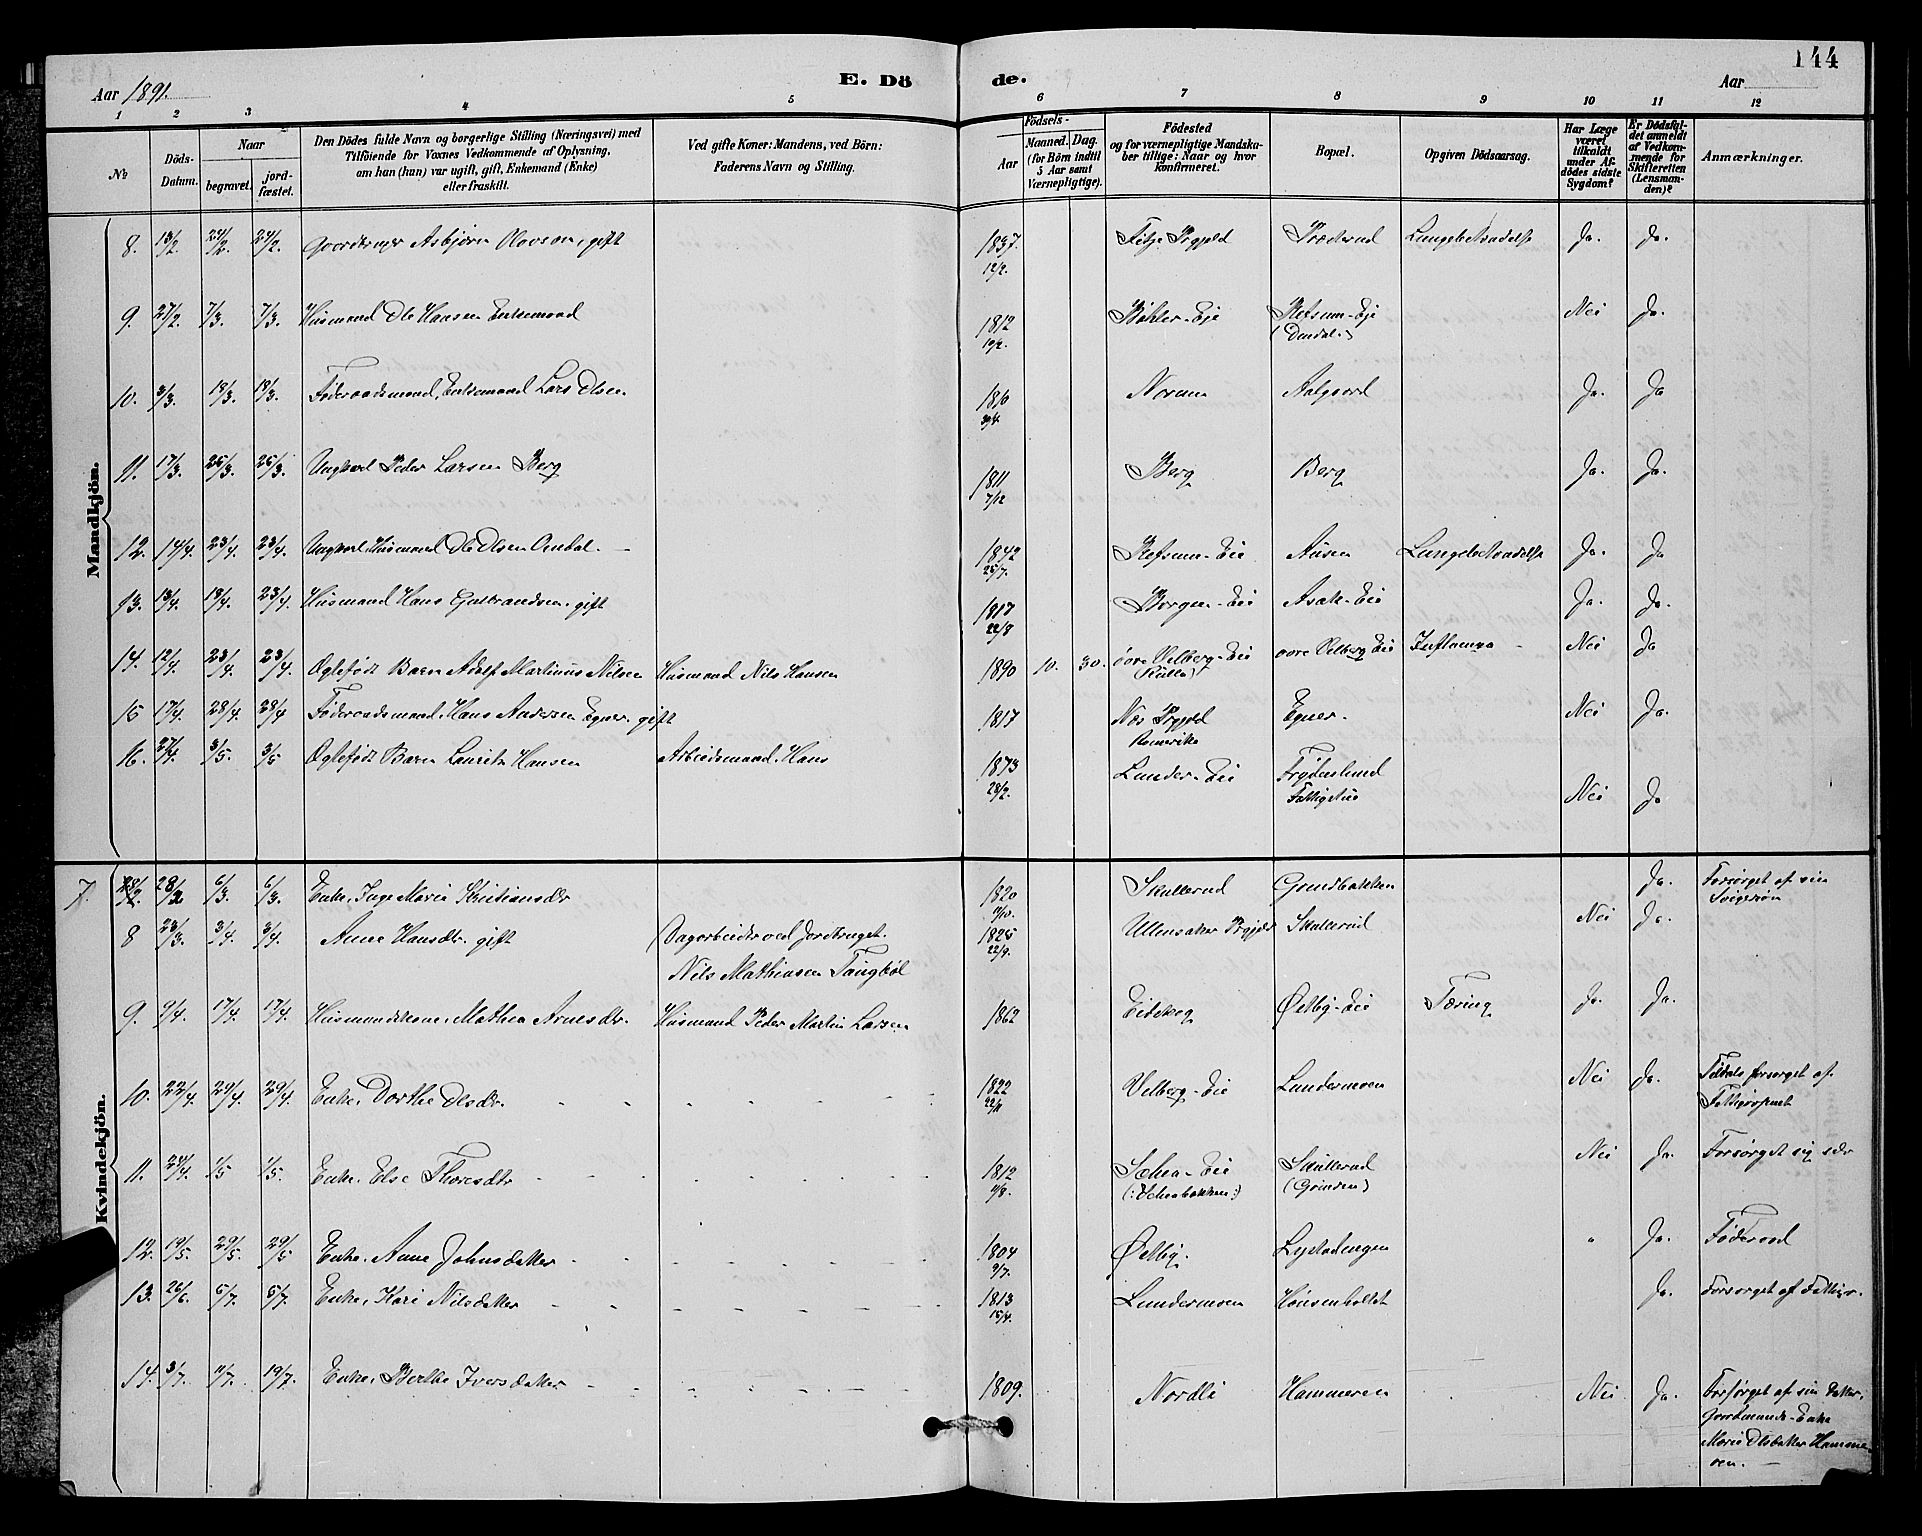 144
Aar 1891. E. Dö de. Aar
1 2 3 4 5 6 7 8 9 10 11 12
No Döds-Datum. Naar begravet. jordfæstet. Den Dödes fulde Navn og borgerlige Stilling (Næringsvei) med Tilföiende for Voxnes Vedkommende af Oplysning, om han (hun) var ugift, gift, Enkemand (Enke) eller fraskilt. Ved gifte Koner: Mandens, ved Börn: Faderens Navn og Stilling. Födsels- Aar Maaned. Dag. (for Börn indtil 5 Aar samt Værnepligtige). Födested og for værnepligtige Mandskaber tillige: Naar og hvor konfirmeret. Bopæl. Opgiven Dödsaarsag. Har Læge været tilkaldt under Afdödes sidste Sygdom? Er Dödsfaldet anmeldt af Vedkommende for Skifteretten (Lensmanden)? Anmærkninger.
Mandkjön.
8. 13/2. 24/2. 24/2. Gaardbruger Asbjørn Olovson, gift 1837 12/2. Prgjeld Lungebetændelse Ja. Ja.
9. 27/2. 7/3. 7/3. Husmand Ole Hansen Enkemand 1812 Bøhler-Eje Refsum-Eje Nei Ja.
10. 3/3. 18/3. 18/3. Føderaadsmand, Enkemand Lars Olsen. 1810 Norum Aalgaard Ja. Ja
11. 17/3. 25/3. 25/3. Ungkarl Peder Larsen Berg 1811 7/12 Berg Berg Ja. Ja.
12. 14/4. 23/4. 23/4. Ungkarl Husmand Ole Olsen 1842 25/7. Refsum-Eie Aasen Lungebetændelse Ja. Ja
13. 13/4. 18/4. 23/4. Husmand Hans Gulbrandsen, gift 1817 22/8 Borgen-Eie Asak-Eie Ja. Ja.
14. 12/4. 23/4. 23/4. Ægtefødt Barn Adolf Martinius Nilsen Husmand Nils Hansen 1890 10. 30. øvre Velberg-Eie øvre Velberg Eie Influenza Nei Ja
15 17/4. 28/4. 28/4 Føderaadsmand, Hans Andersen Egner. gift 1817 Næs Prgjeld Romerike Egner. Nei Ja.
16. 27/4. 3/5. 3/5 Ægtefødt Barn Lauritz Hansen Arbeidsmand. Hans 1873 28/2. Lunder-Eie Frydenlund Fattighus Nei Ja
Kvindekjön.
7. 28/2. 6/3. 6/3. Enke, Inge Marie Kristiansdr 1820 Skullerud Grindbakken Ja. Forsørget af sin Svigersøn
8 23/3. 3/4. 3/4. Anne Hansdr. gift Dagarbeider ved Jordbruget. 1825 22/9. Ullensaker Prgjeld Skullerud Nei Ja.
Nils Mathiasen Tangbøl
9. 9/4. 17/4. 17/4. Husmandskone, Mathea Arnesdr. Husmand Peder Martin Larsen 1862 Eidskog Østby-Eie Tæring Ja. Ja.
10. 22/4. 29/4. 29/4. Enke, Dorthe Olsdr. 1822 22/11 Velberg-Eie Lundermoen Nei Ja. Tildels forsørget af Fattigvæsenet
11. 24/4. 1/5 1/5. Enke. Else Thoresdtr 1812 Skullerud (Grinden) Nei Ja. Forsørget sig selv
12. 19/5. 29/5. 29/5 Enke, Anne Johnsdatter 1804 9/7. Østby. Lystadengen " Ja. Føderaad
13. 26/6. 5/7. 5/7. Enke, Kari Nilsdatter 1813 15/4. Lundermoen Hønsenholtet Ja. Forsørget af Fattigv.
14. 3/7. 11/7. 19/7. Enke, Berthe Iversdatter 1809. Nordli Hammeren Nei Ja. Forsørget af sin Datter, Gaardmands-Enke Marie Olsdatter Hammeren.